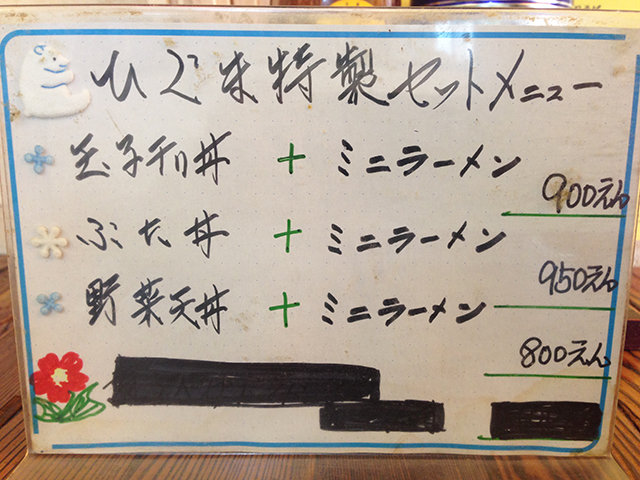 ひぐま特製セットメニュー
玉子チリ丼 + ミニラーメン 900えん
ぶた丼 + ミニラーメン 950えん
野菜天丼 + ミニラーメン 800えん